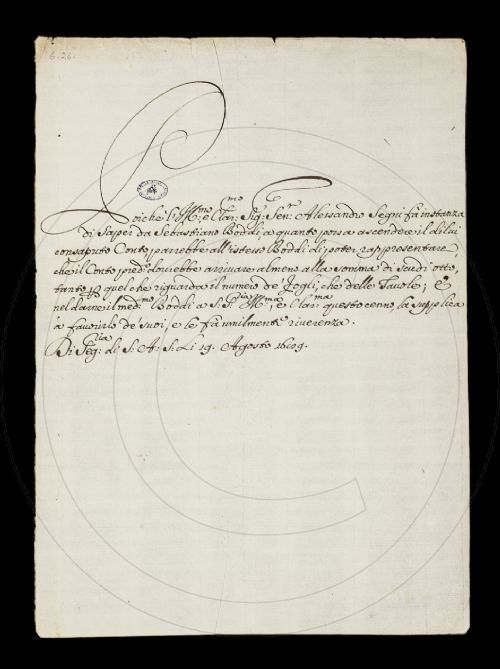 6. 26.
Poiche l'Ill.mo, e Clar.mo Sig.r Sen.r Alessandro Segni fa instanza
di saper da Sebastiano Boddi, a quanto possa ascendere il di lui
consaputo Conto, parrebbe all'istesso Boddi di poter rappresentare,
che il Conto pred.o dovrebbe arrivare almeno alla somma di scudi otto,
tanto p quel che riguarda il numero de' Fogli, che delle Tavole; E
nel darne il med.mo Boddi a S.S.ria Ill.ma, e Clar.ma questo cenno la supplica
a favorirlo de suoi, e le fa umilmente riverenza.
Di Seg.ria di S. A. S. li 19. Agosto